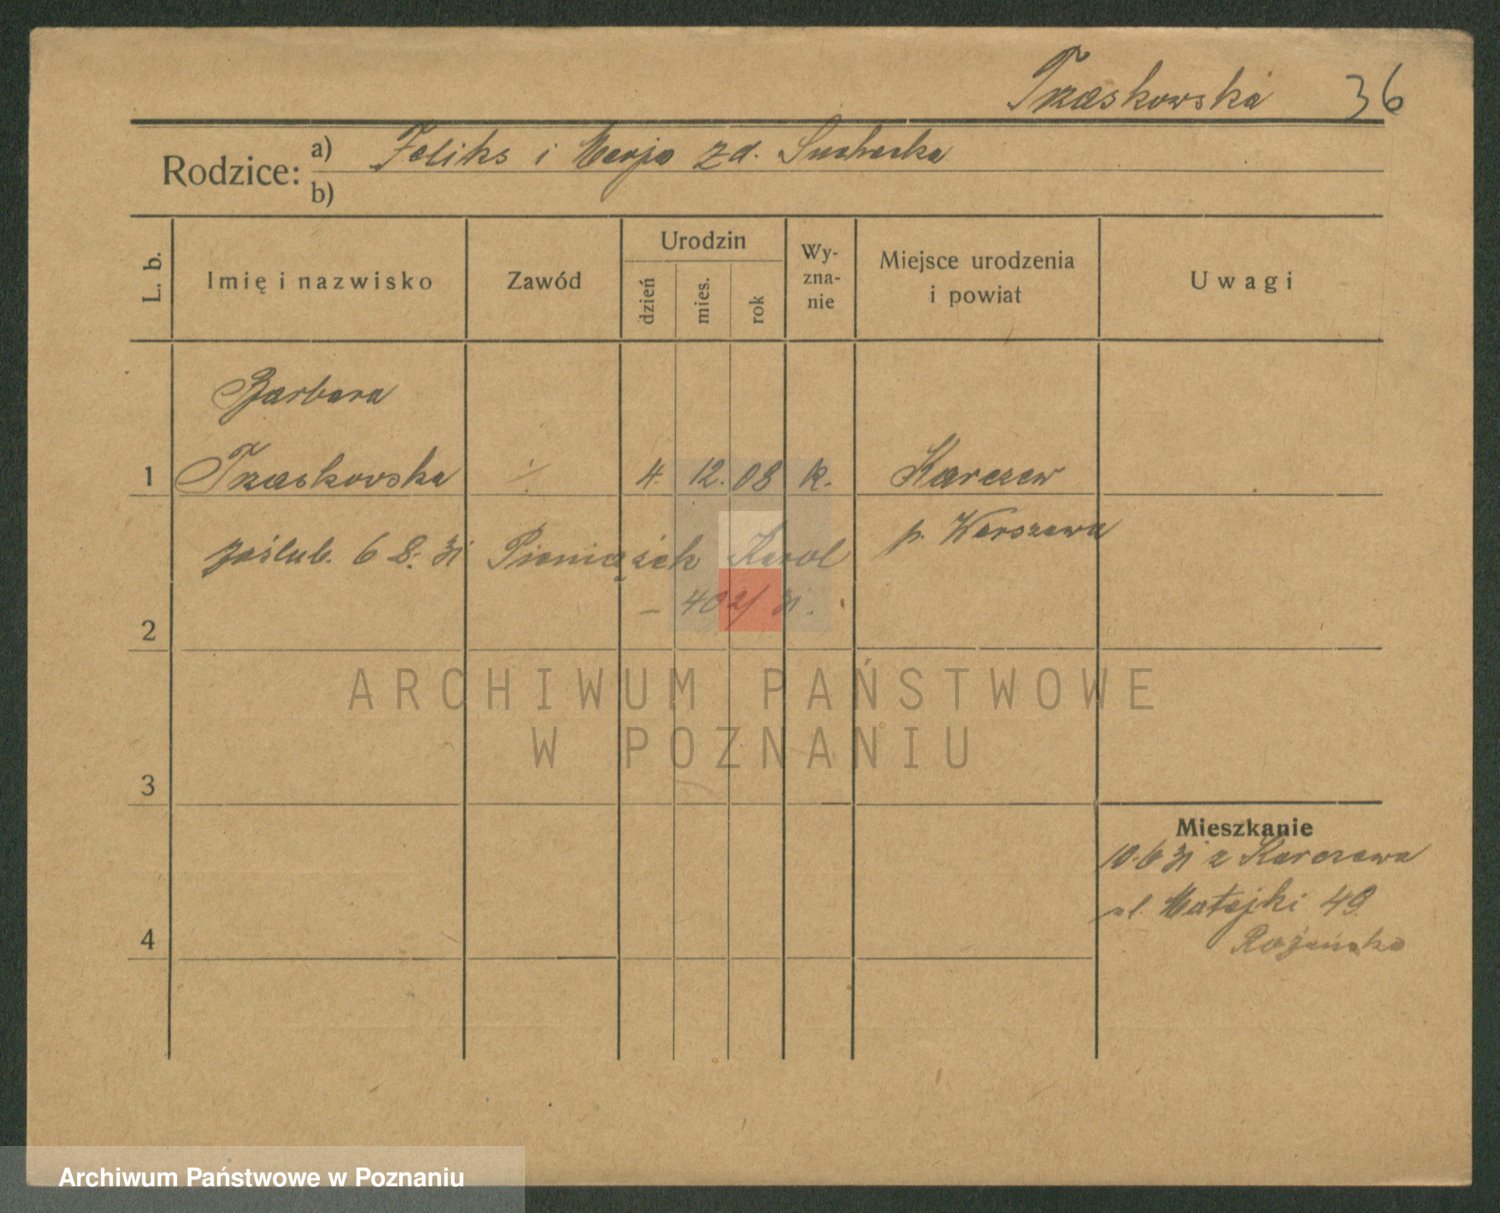 Trzaskowska 36
Rodzice: a) Feliks i Marja zd. Suchecka
b)
L. b. Imię i nazwisko Zawód Urodzin dzień mies. rok Wy-zna-nie Miejsce urodzenia i powiat Uwagi
Barbara
1 Trzaskowska ./. 4. 12. 08 k. Karczew
p. Warszawa
zaślub. 6 8. 31 Pieniążek Karol
– 402/31.
2
ARCHIWUM PAŃSTWOWE
W POZNANIU
3
Mieszkanie
10.6 31 z Karczewa
ul. Matejki 49
4
Archiwum Państwowe w Poznaniu